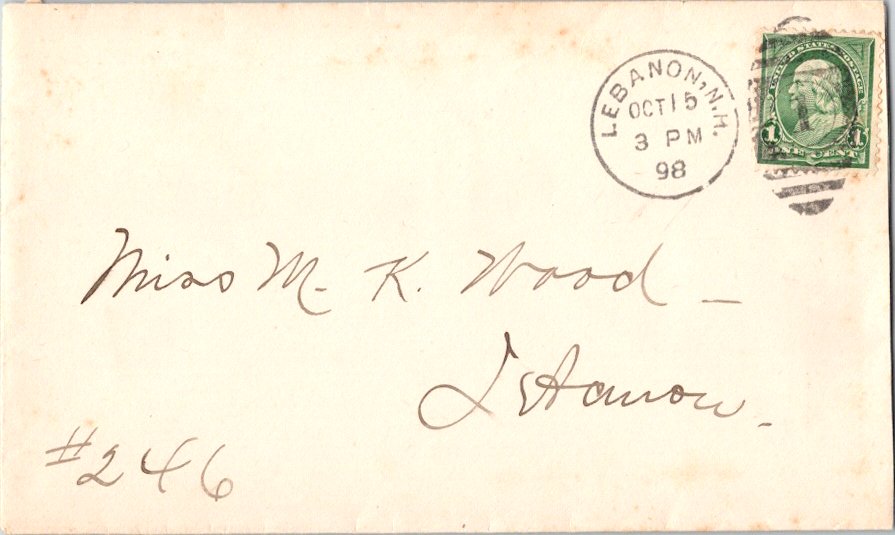 LEBANON, N.H.
OCT 15
3 PM
98
UNITED STATES POSTAGE
1 ONE CENT 1
Miss M. K. Wood –
Lebanon.
#246